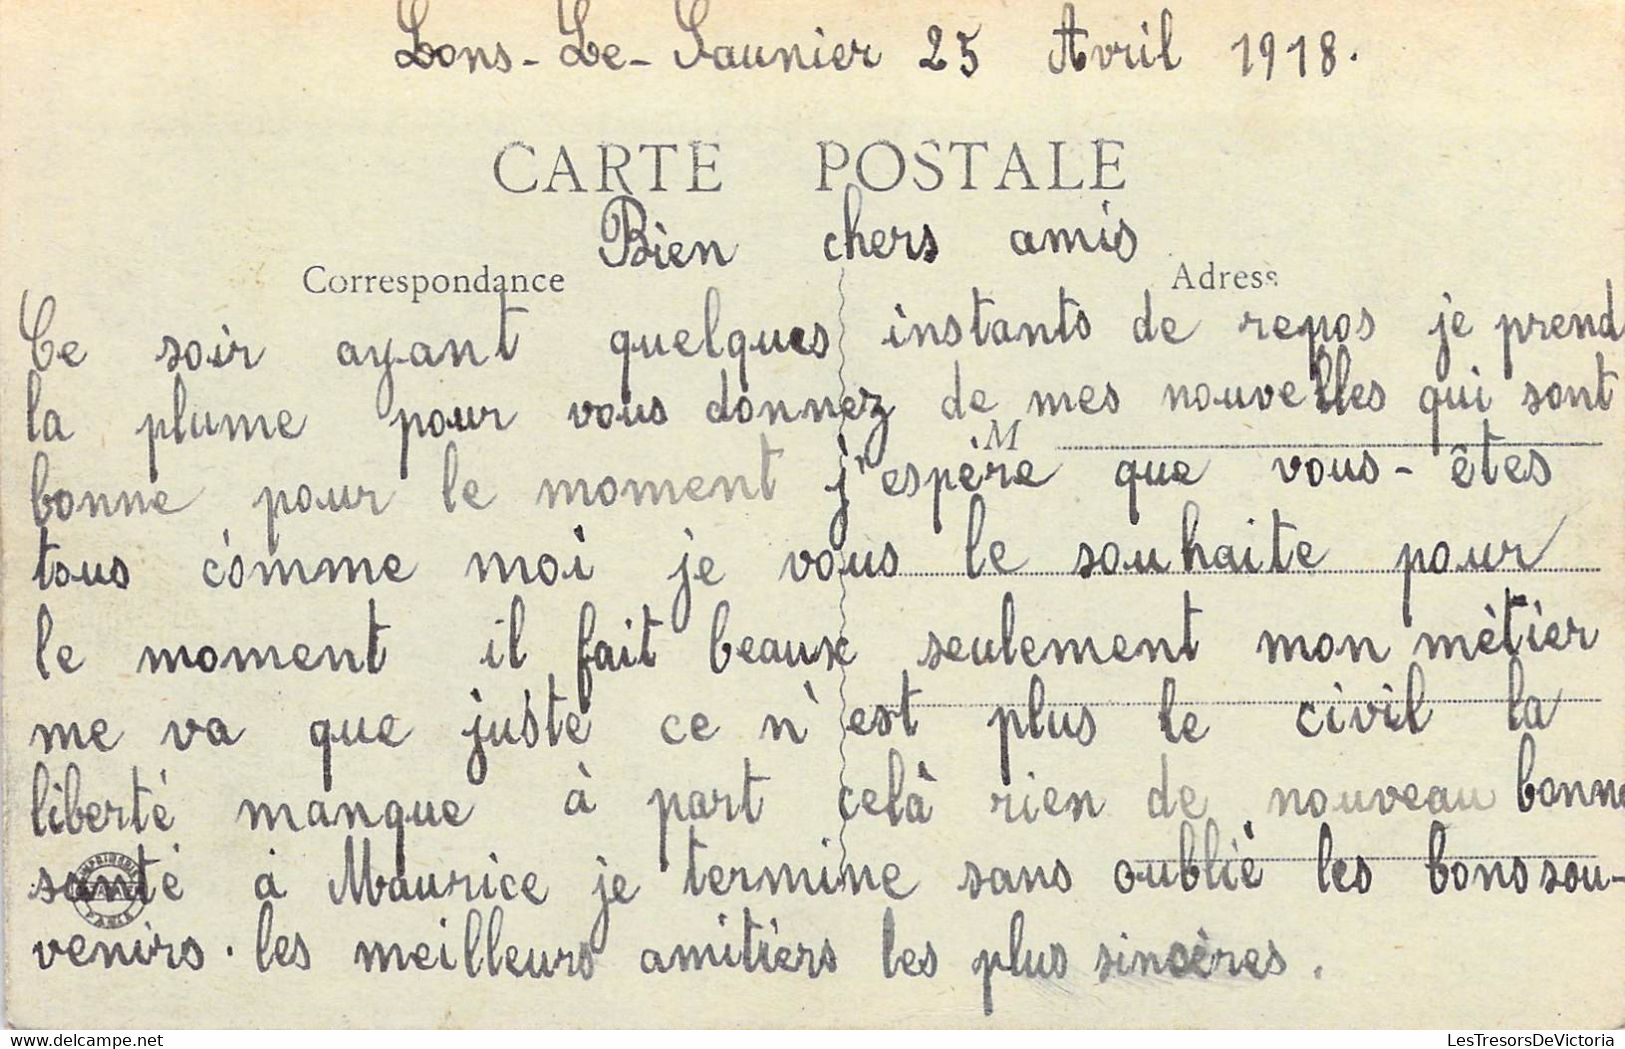 Lons-Le-Saunier 25 Avril 1918.
CARTE POSTALE
Bien chers amis
Correspondance
Adresse
Ce soir ayant quelques instants de repos je prend
la plume pour vous donnez de mes nouvelles qui sont
M
bonne pour le moment j'espère que vous-êtes
tous comme moi je vous le souhaite pour
le moment il fait beaux seulement mon mètier
me va que juste ce n'est plus le civil la
liberté manque à part celà rien de nouveau bonne
santé à Maurice je termine sans oublié les bons sou-
venirs. les meilleurs amitiers les plus sincères.
delcampe.net
LesTresorsDeVictoria